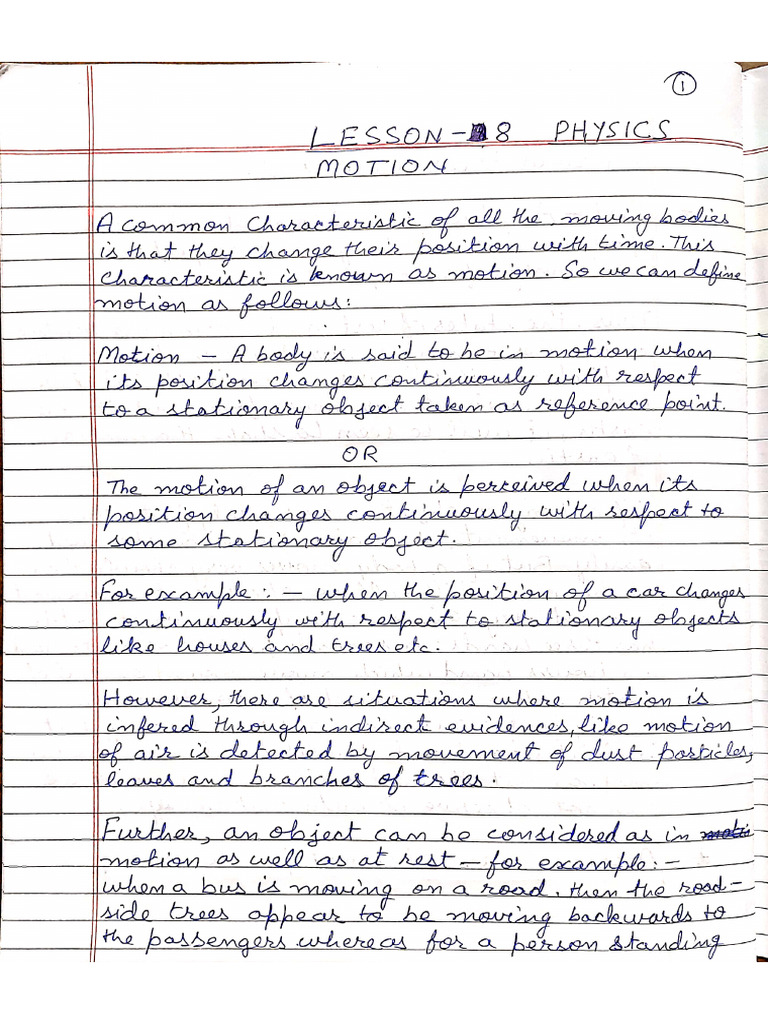 1
LESSON-8 PHYSICS
MOTION
A common Characteristic of all the moving bodies
is that they change their position with time. This
characteristic is known as motion. So we can define
motion as follows:
Motion – A body is said to be in motion when
its position changes continuously with respect
to a stationary object taken as reference point.
OR
The motion of an object is perceived when its
position changes continuously with respect to
some stationary object.
For example: – when the position of a car changes
continuously with respect to stationary objects
like houses and trees etc.
However, there are situations where motion is
infered through indirect evidences, like motion
of air is detected by movement of dust particles,
leaves and branches of trees.
Further, an object can be considered as in
motion as well as at rest – for example: –
when a bus is moving on a road, then the road-
side trees appear to be moving backwards to
the passengers whereas for a person standing